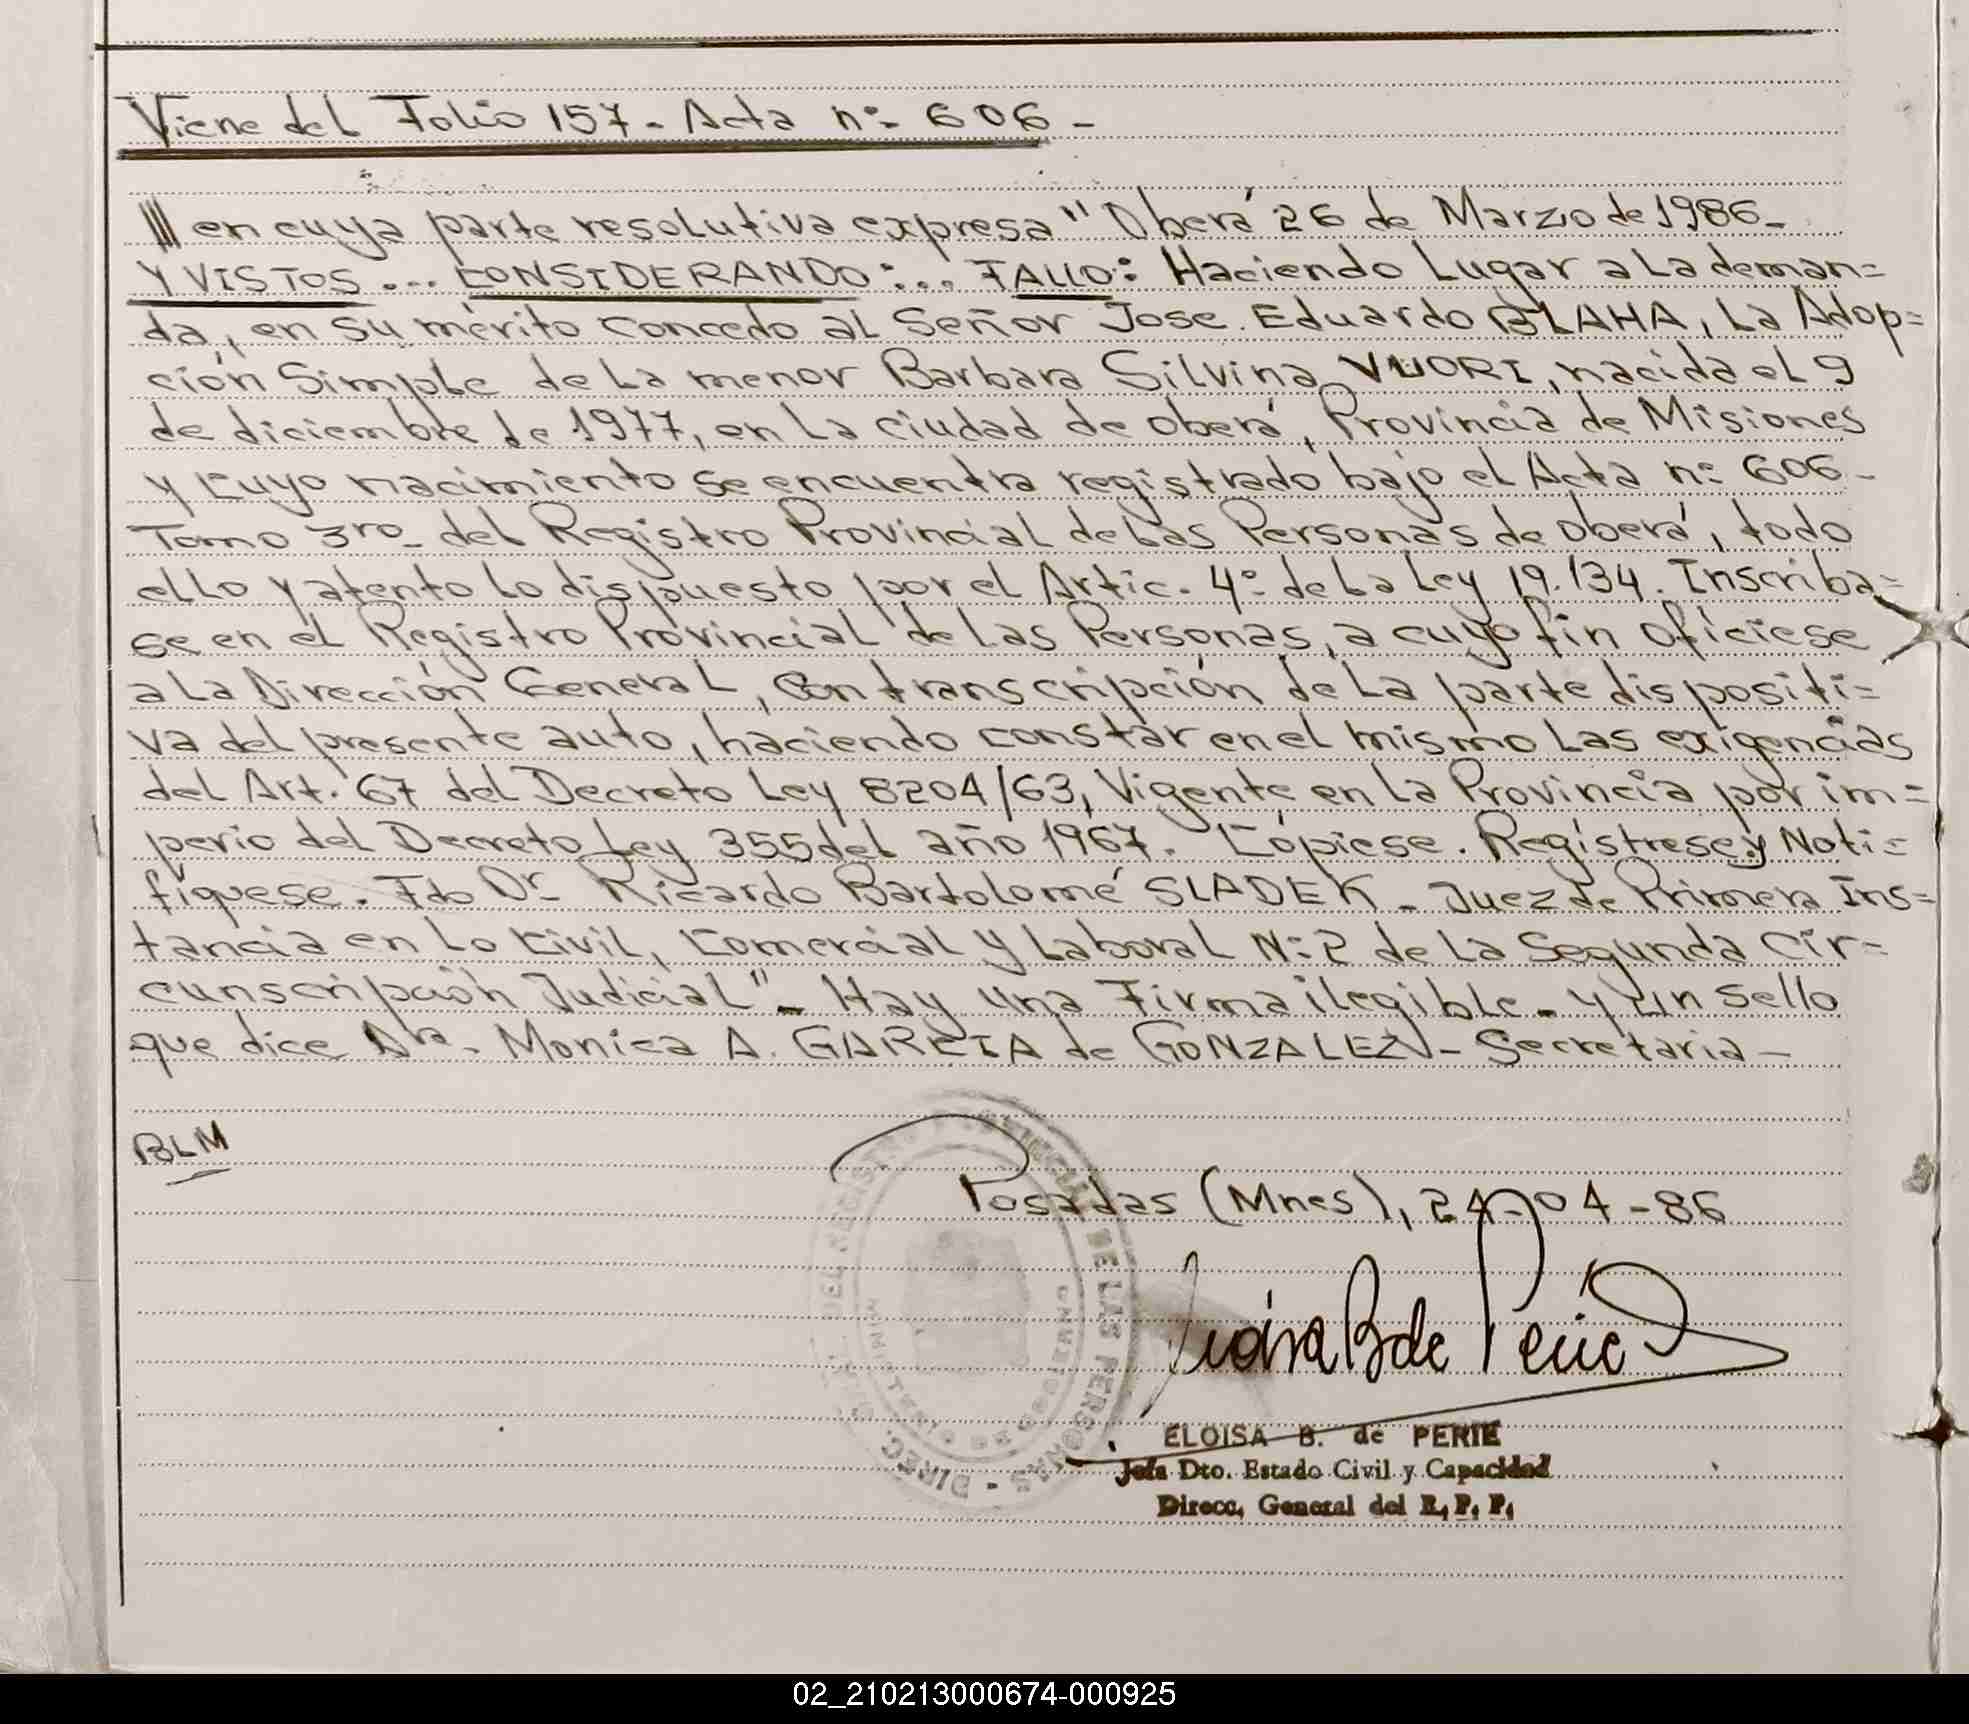 Viene del Folio 157 - Acta nº 606 -
/// en cuya parte resolutiva expresa "Oberá 26 de Marzo de 1986-
Y VISTOS ... CONSIDERANDO: ... FALLO: Haciendo Lugar a La deman=
da, en su mérito concedo al Señor Jose Eduardo BLAHA, La Adop=
ción Simple de La menor Barbara Silvina VUORI, nacida el 9
de diciembre de 1977, en La ciudad de Oberá, Provincia de Misiones
y cuyo nacimiento se encuentra registrado bajo el Acta nº 606-
Tomo 3ro- del Registro Provincial de Las Personas de Oberá, todo
ello y atento Lo dispuesto por el Artic. 4º de La Ley 19.134. Inscriba=
se en el Registro Provincial de Las Personas, a cuyo fin oficiese
a La Dirección General, Con transcripción de La parte dispositi=
va del presente auto, haciendo constar en el mismo Las exigencias
del Art. 67 del Decreto Ley 8204/63, Vigente en La Provincia por im=
perio del Decreto Ley 355 del año 1967. Cópiese. Regístrese y Noti=
fíquese. Fdo Dr- Ricardo Bartolomé SLADEK - Juez de Primera Ins=
tancia en Lo Civil, Comercial y Laboral Nº 2 de La Segunda Cir=
cunscripción Judicial" - Hay una Firma ilegible - y un sello
que dice Dra. Monica A. GARCIA de GONZALEZ - Secretaria -
BLM
Posadas (Mnes), 24-04-86
DIREC. GRAL. DEL REGISTRO PROVINCIAL DE LAS PERSONAS
B de Perie
ELOISA B. de PERIE
Jefa Dto. Estado Civil y Capacidad
Direcc. General del R. P. P.
02_210213000674-000925